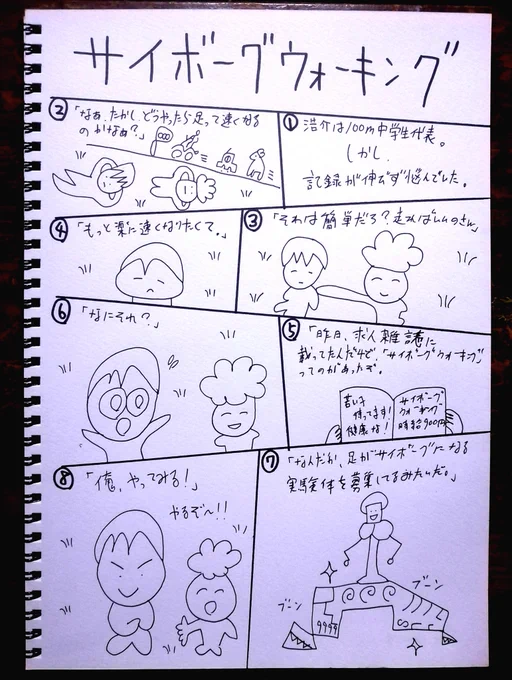 サイボーグウォーキング
①浩介は100m中学生代表。
しかし
記録が伸びず悩んでした。
②「なぁ、たかし、どうやったら足って速くなる
のかなぁ?」
③「それは簡単だろ?走ればいいのさ。」
④「もっと楽に速くなりたくて。」
⑤「昨日、求人雑誌に
載ってたんだけど、「サイボーグウォーキング」
ってのがあったぞ。
若い子
待ってます!
健康な!
サイボーグ
ウォーキング
時給900円
⑥「なにそれ?」
⑦「なんだか、足がサイボーグになる
実験体を募集してるみたいだ。」
ブーン
ブーン
9999
⑧「俺、やってみる!」
やるぞ〜!!